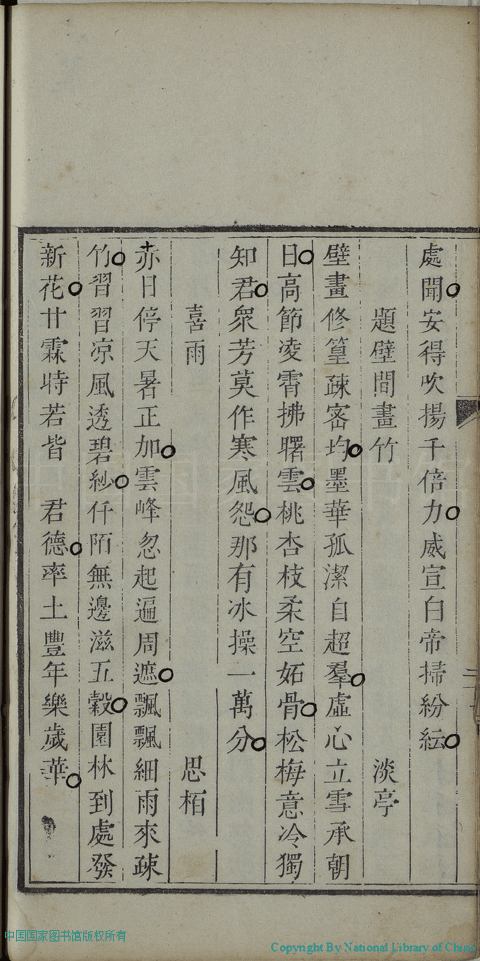 處聞安得吹揚千倍力威宣白帝掃紛紜
題壁間畫竹 淡亭
壁畫修篁疎密均墨華孤潔自超羣虛心立雪承朝
日高節凌霄拂曙雲桃杏枝柔空妬骨松梅意冷獨
知君衆芳莫作寒風怨那有冰操一萬分
喜雨 思栢
赤日停天暑正加雲峰忽起遍周遮飄飄細雨來疎
竹習習凉風透碧紗仟陌無邊滋五穀園林到處發
新花甘霖時若皆 君德率土豐年樂歲華
中国国家图书馆版权所有
Copyright By National Library of China